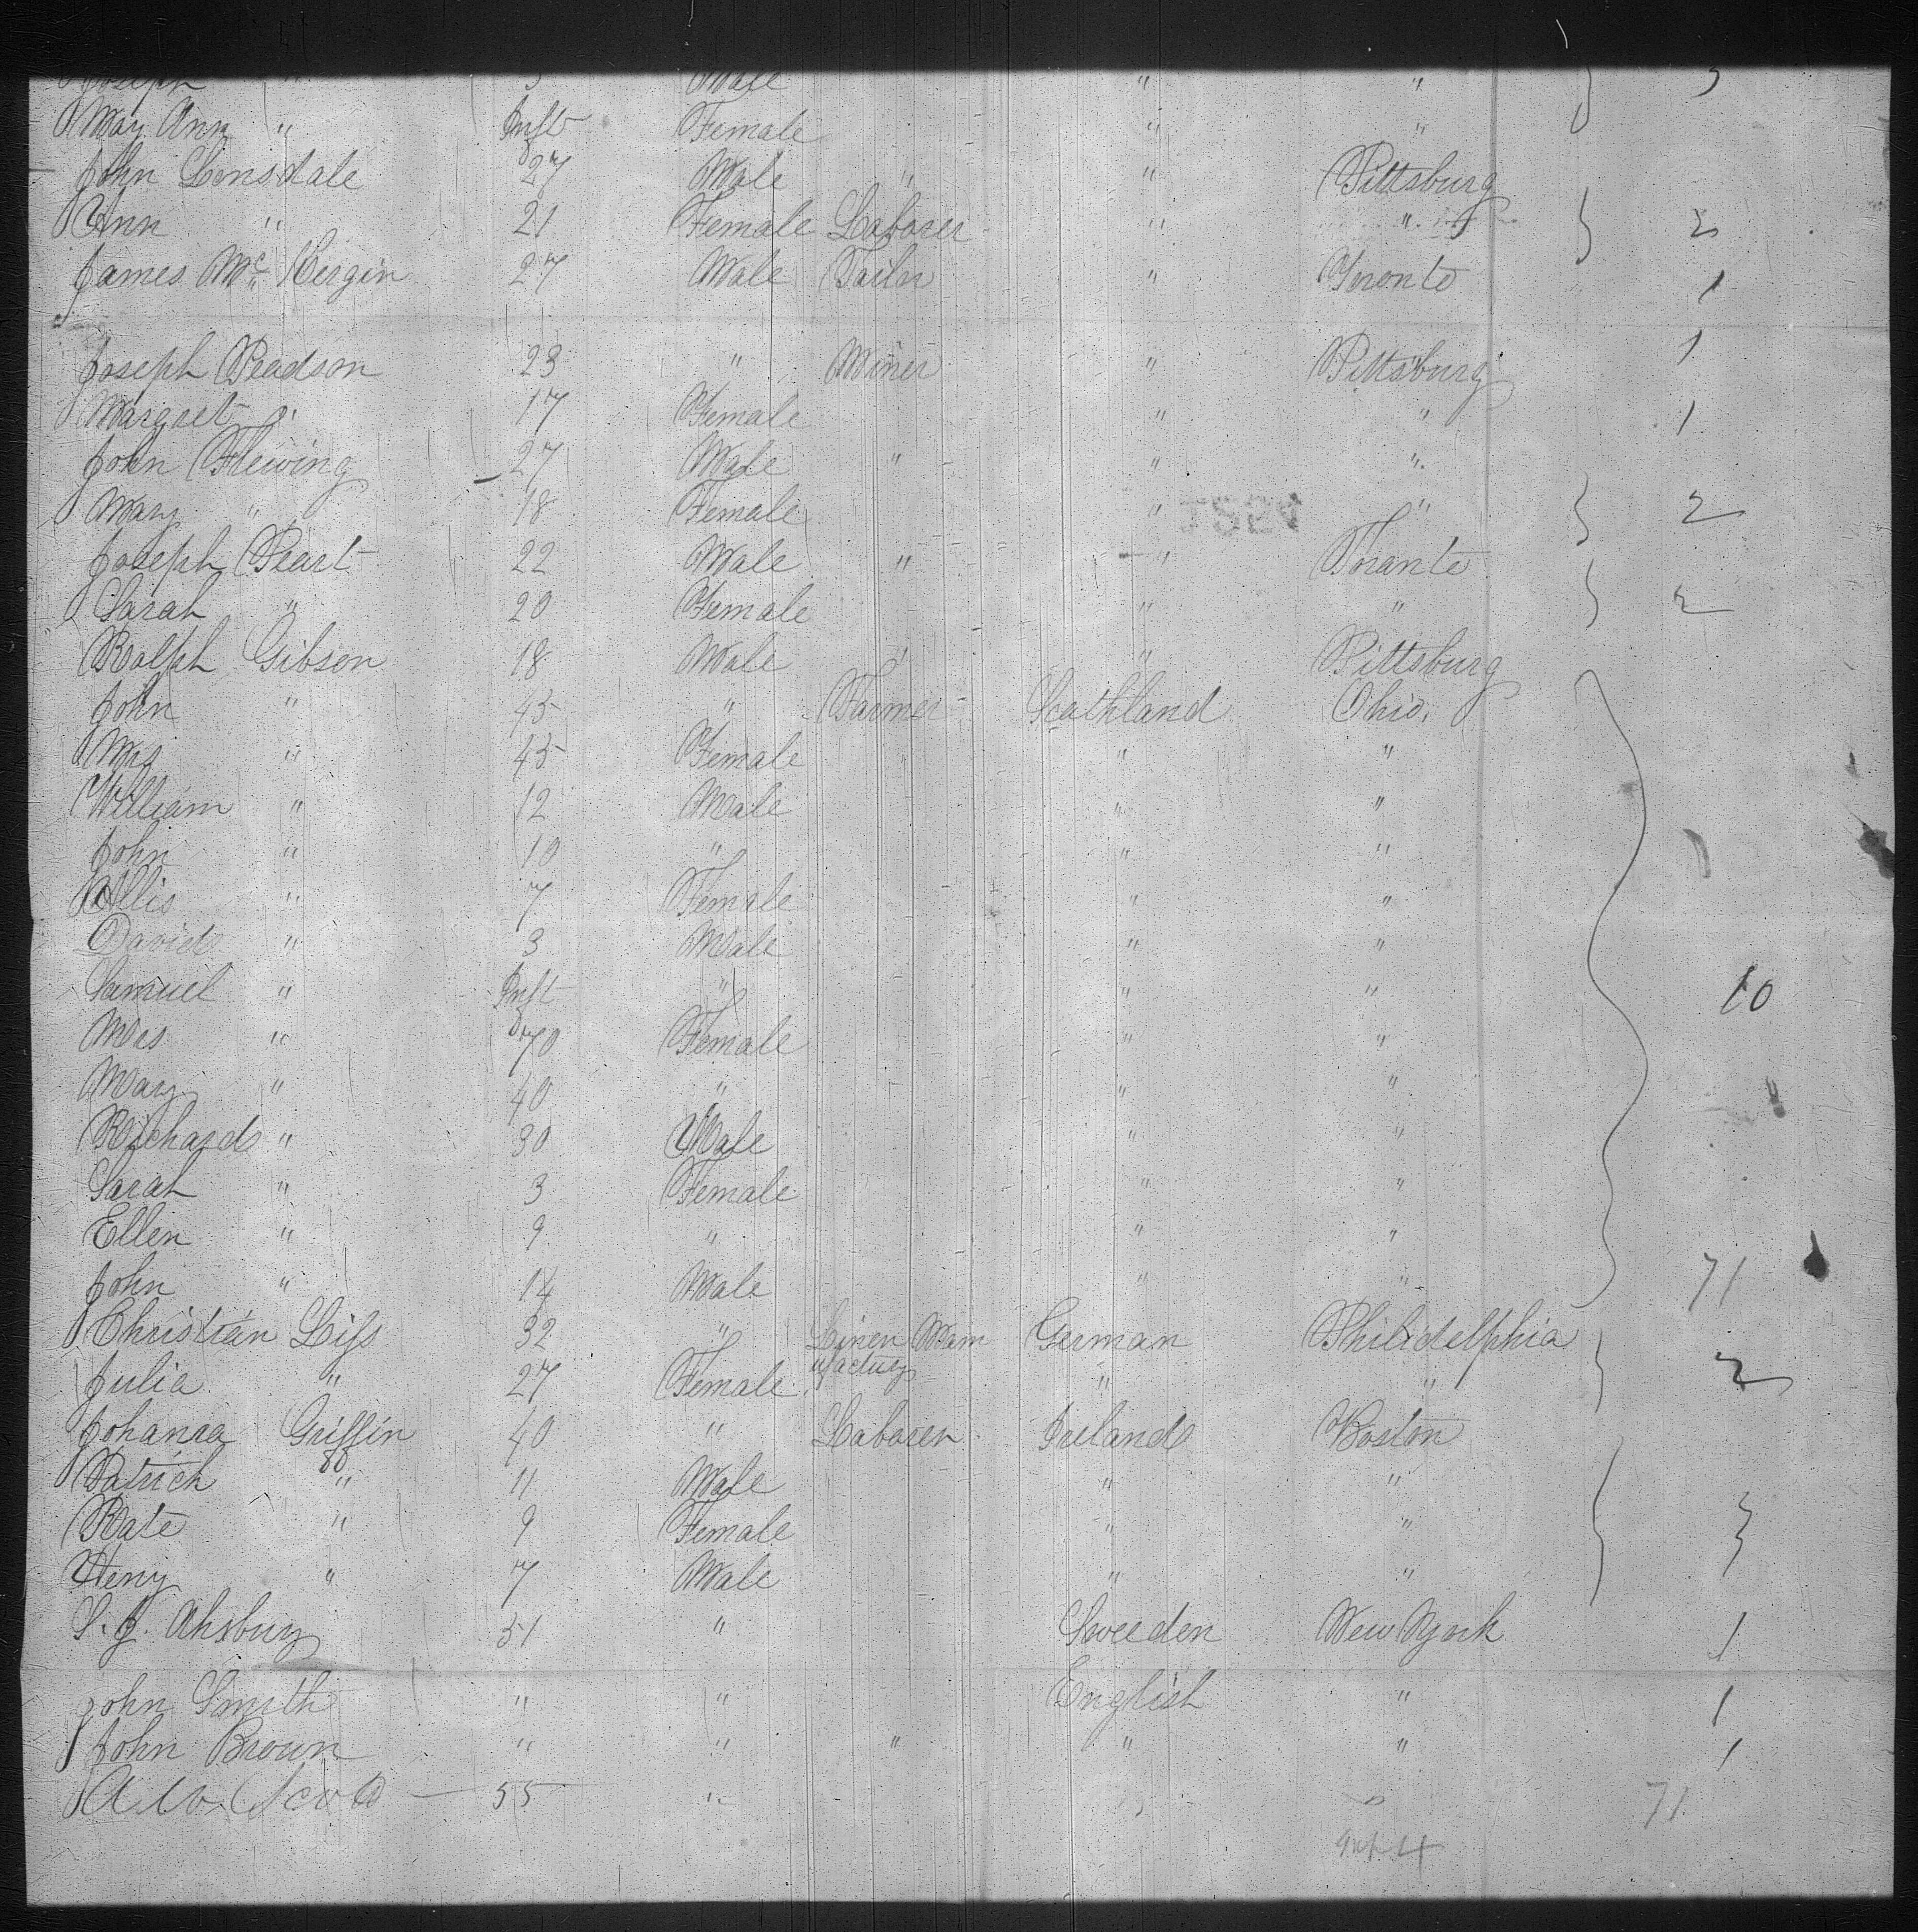 Joseph " 3 Male " " } 3
Mary Ann " Inft Female " "
John Lonsdale 27 Male " " Pittsburg
Ann " 21 Female Laborer " " } 2
James Mc Kergin 27 Male Tailor " Toronto 1
Joseph Peadson 23 " Miner " Pittsburg 1
Margret " 17 Female " " 1
John Flewing 27 Male " " "
Mary " 18 Female " " } 2
Joseph Peart 22 Male " " Toranto
Sarah " 20 Female " " } 2
Ralph Gibson 18 Male " " Pittsburg
John " 45 " Farmer Scathland Ohio.
Mrs " 45 Female " "
William " 12 Male " "
John " 10 " " "
Allis " 7 Female " "
David " 3 Male " "
Samuel " Inft " " " 10
Mrs " 70 Female " "
Mary " 40 " " "
Richard " 30 Male " "
Sarah " 3 Female " "
Ellen " 9 " " "
John " 14 Male " " 71
Christian Liss 32 " Linen Manufactury German Philidelphia
Julia " 27 Female " " } 2
Johanna Griffin 40 " Laborer Ireland Boston
Patrick " 11 Male " "
Kate " 9 Female " " } 3
Heny " 7 Male " "
S. J. Ahsbury 51 " Sweeden New York 1
John Smith " " English " 1
John Brown " " " " " 1
55 " " 71